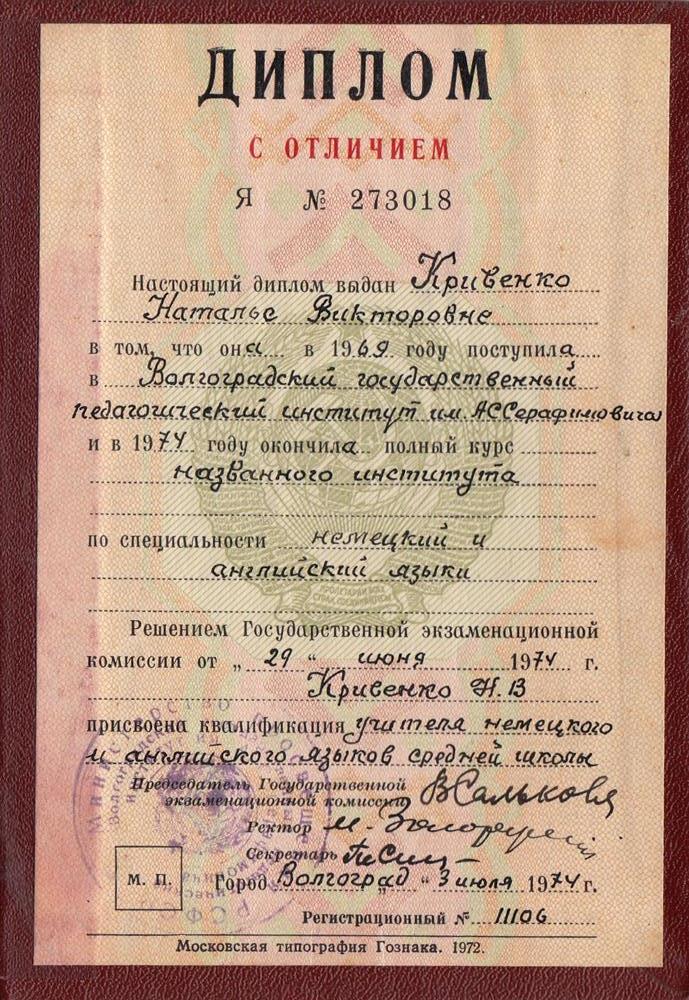 ДИПЛОМ
С ОТЛИЧИЕМ
Я № 273018
Настоящий диплом выдан Кривенко
Наталье Викторовне
в том, что она в 1969 году поступила
в Волгоградский государственный
педагогический институт им. А.С.Серафимовича
и в 1974 году окончила полный курс
названного института
по специальности немецкий и
английский языки
Решением Государственной экзаменационной
комиссии от „29“ июня 1974 г.
Кривенко Н.В
присвоена квалификация учителя немецкого
и английского языков средней школы
Председатель Государственной
экзаменационной комиссии
Ректор
Секретарь
М. П.
Город Волгоград „ “ 3 июля 1974 г.
Регистрационный № 11106
Московская типография Гознака. 1972.